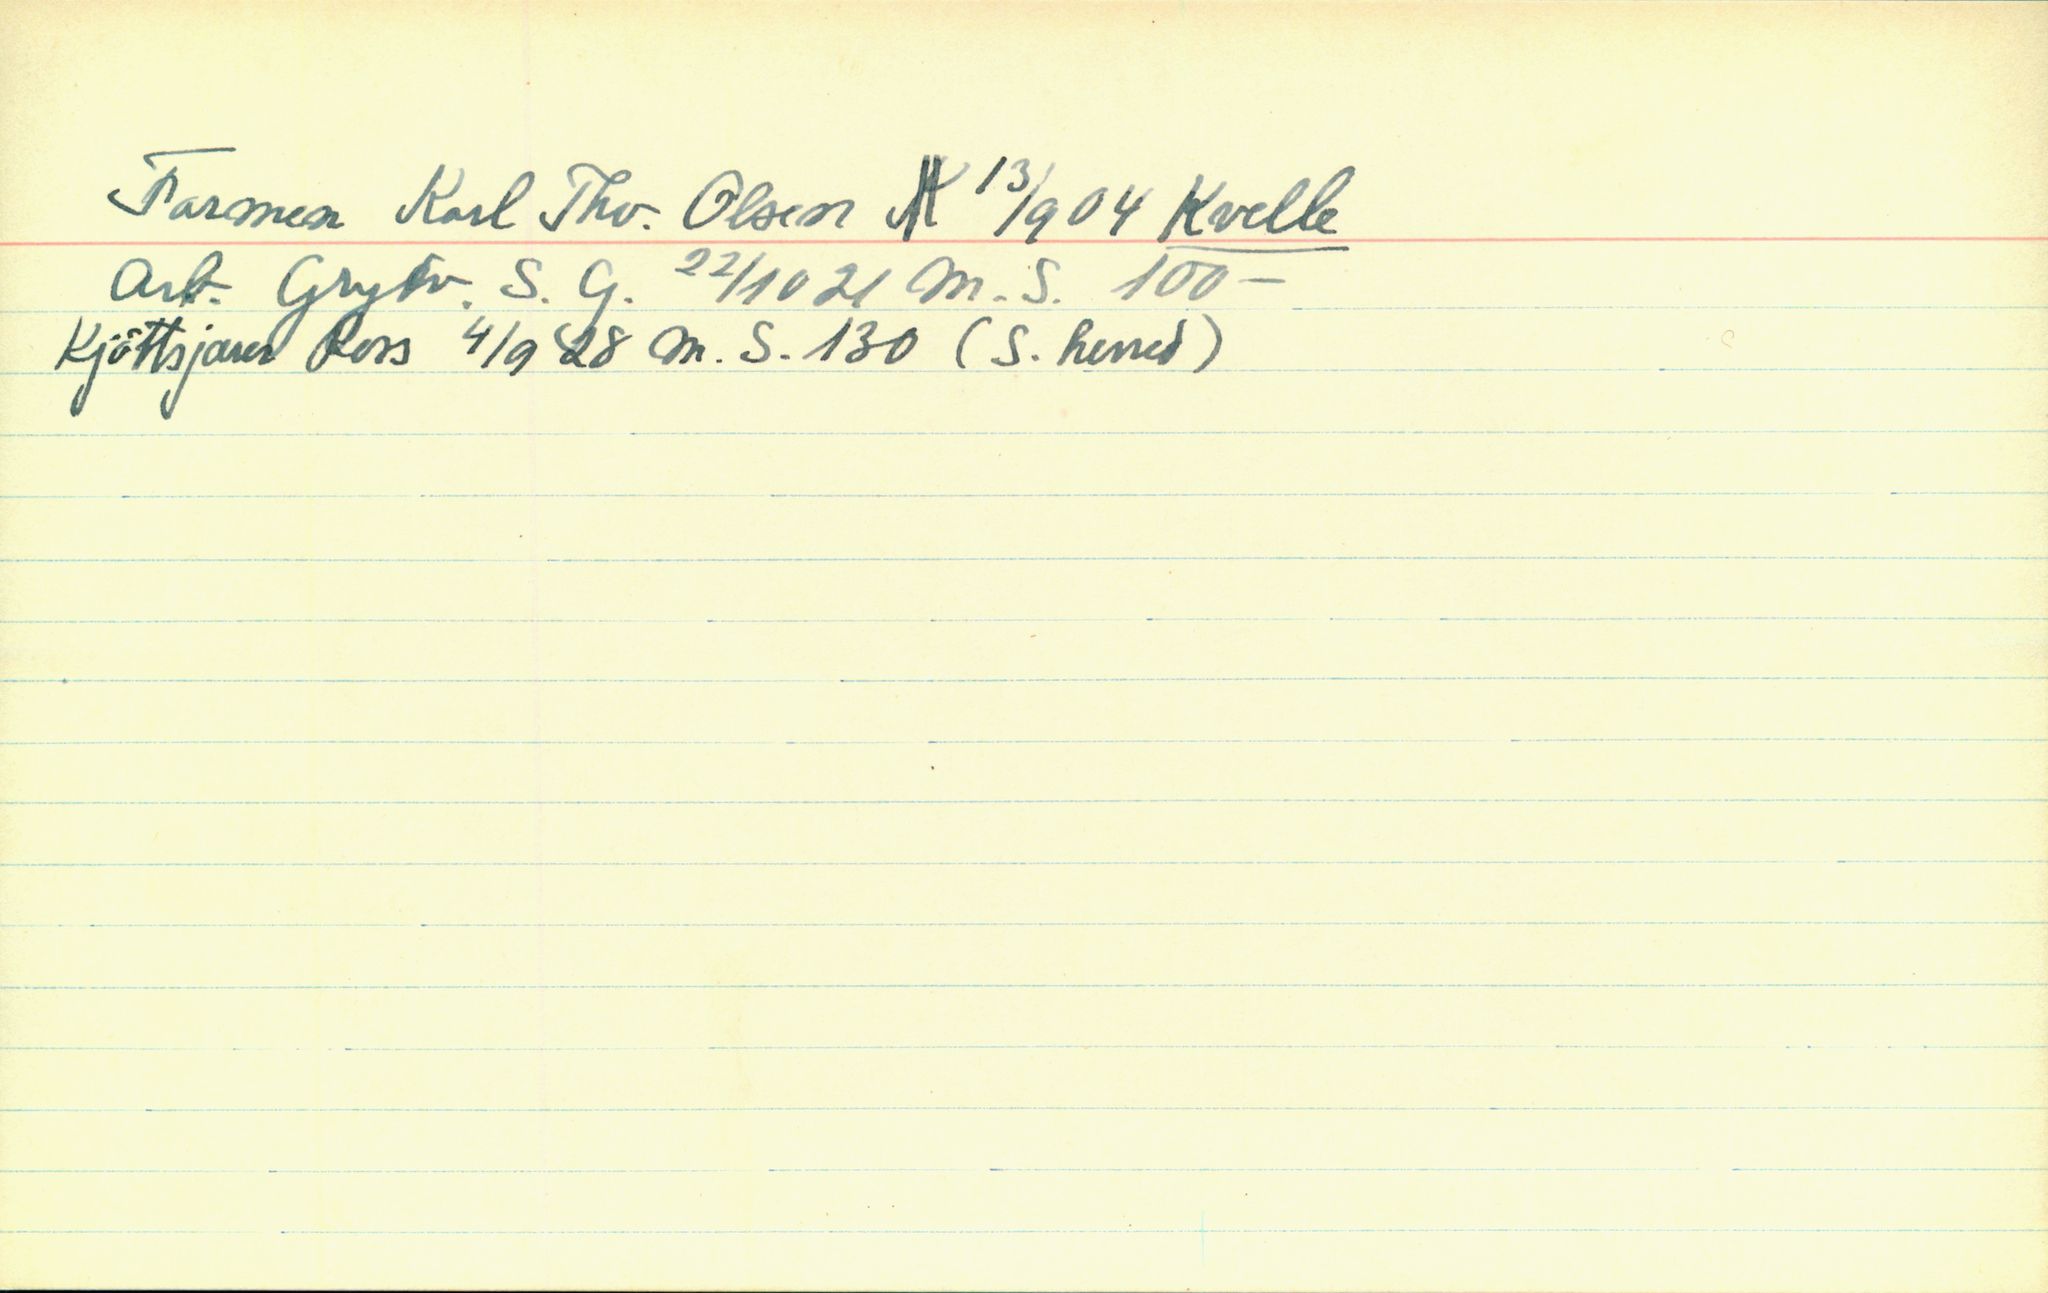 Farmen Karl Thv. Olsen 13/9 04 Kvelle
Arb. Grytv. S. G. 22/10 21 M.S. 100-
Kjöttsjauer Ross 4/9 28 M.S. 130 (S. herred)